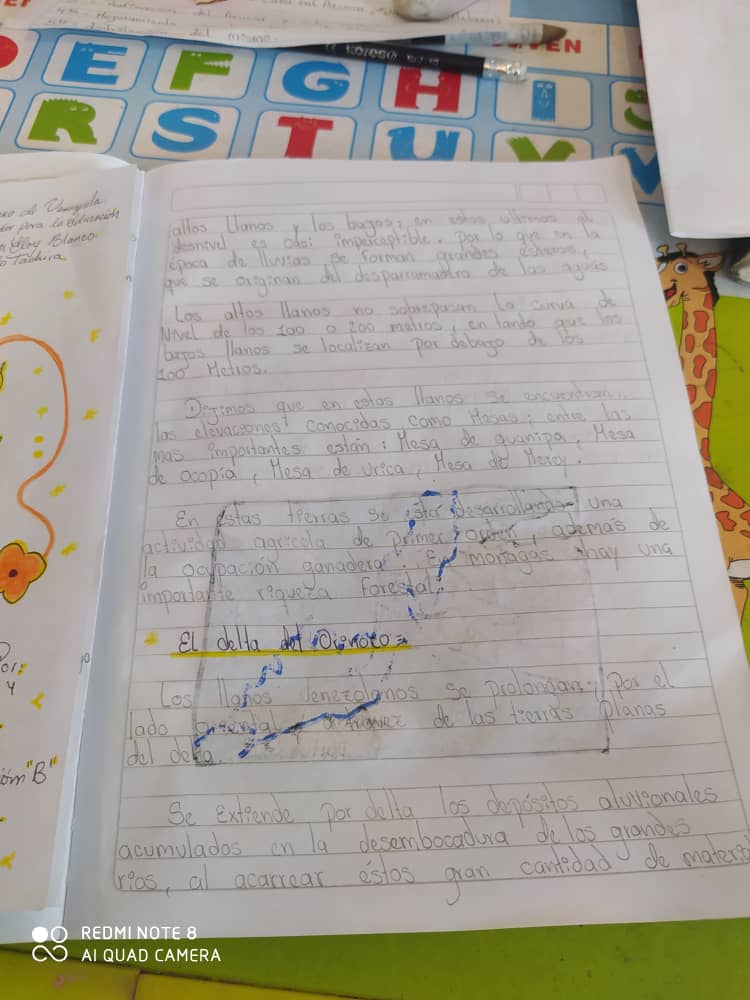 del mismo.
VEN
KORES
E F G H I J
R S T U V V
de Venezuela
para la Educación
Eloy Blanco
Táchira
altos Llanos y los bajos; en estos ultimos el
desnivel es casi imperceptible. Por lo que en la
época de lluvias se forman grandes esteros,
que se originan del desparramadra de las aguas
Los altos llanos no sobrepasan la curva de
Nivel de los 100 o 200 metros, en tanto que los
bajos llanos se localizan por debajo de los
100 Metros.
Dijimos que en estos llanos se encuentran
las elevaciones conocidas como Mesas; entre las
mas importantes están: Mesa de guanipa, Mesa
de ocopia, Mesa de Urica, Mesa de
En estas tierras se está desarrollando una
actividad agricola de primer orden, además de
la ocupación ganadera. En monagas hay una
importante riqueza forestal.
El delta del Orinoco =
Los llanos Venezolanos se prolongan; por el
lado oriental, a través de las tierras planas
del delta.
Se Extiende por delta los depósitos aluvionales
acumulados en la desembocadura de los grandes
rios, al acarrear éstos gran cantidad de materi
Por:
y
ión "B"
REDMI NOTE 8
AI QUAD CAMERA